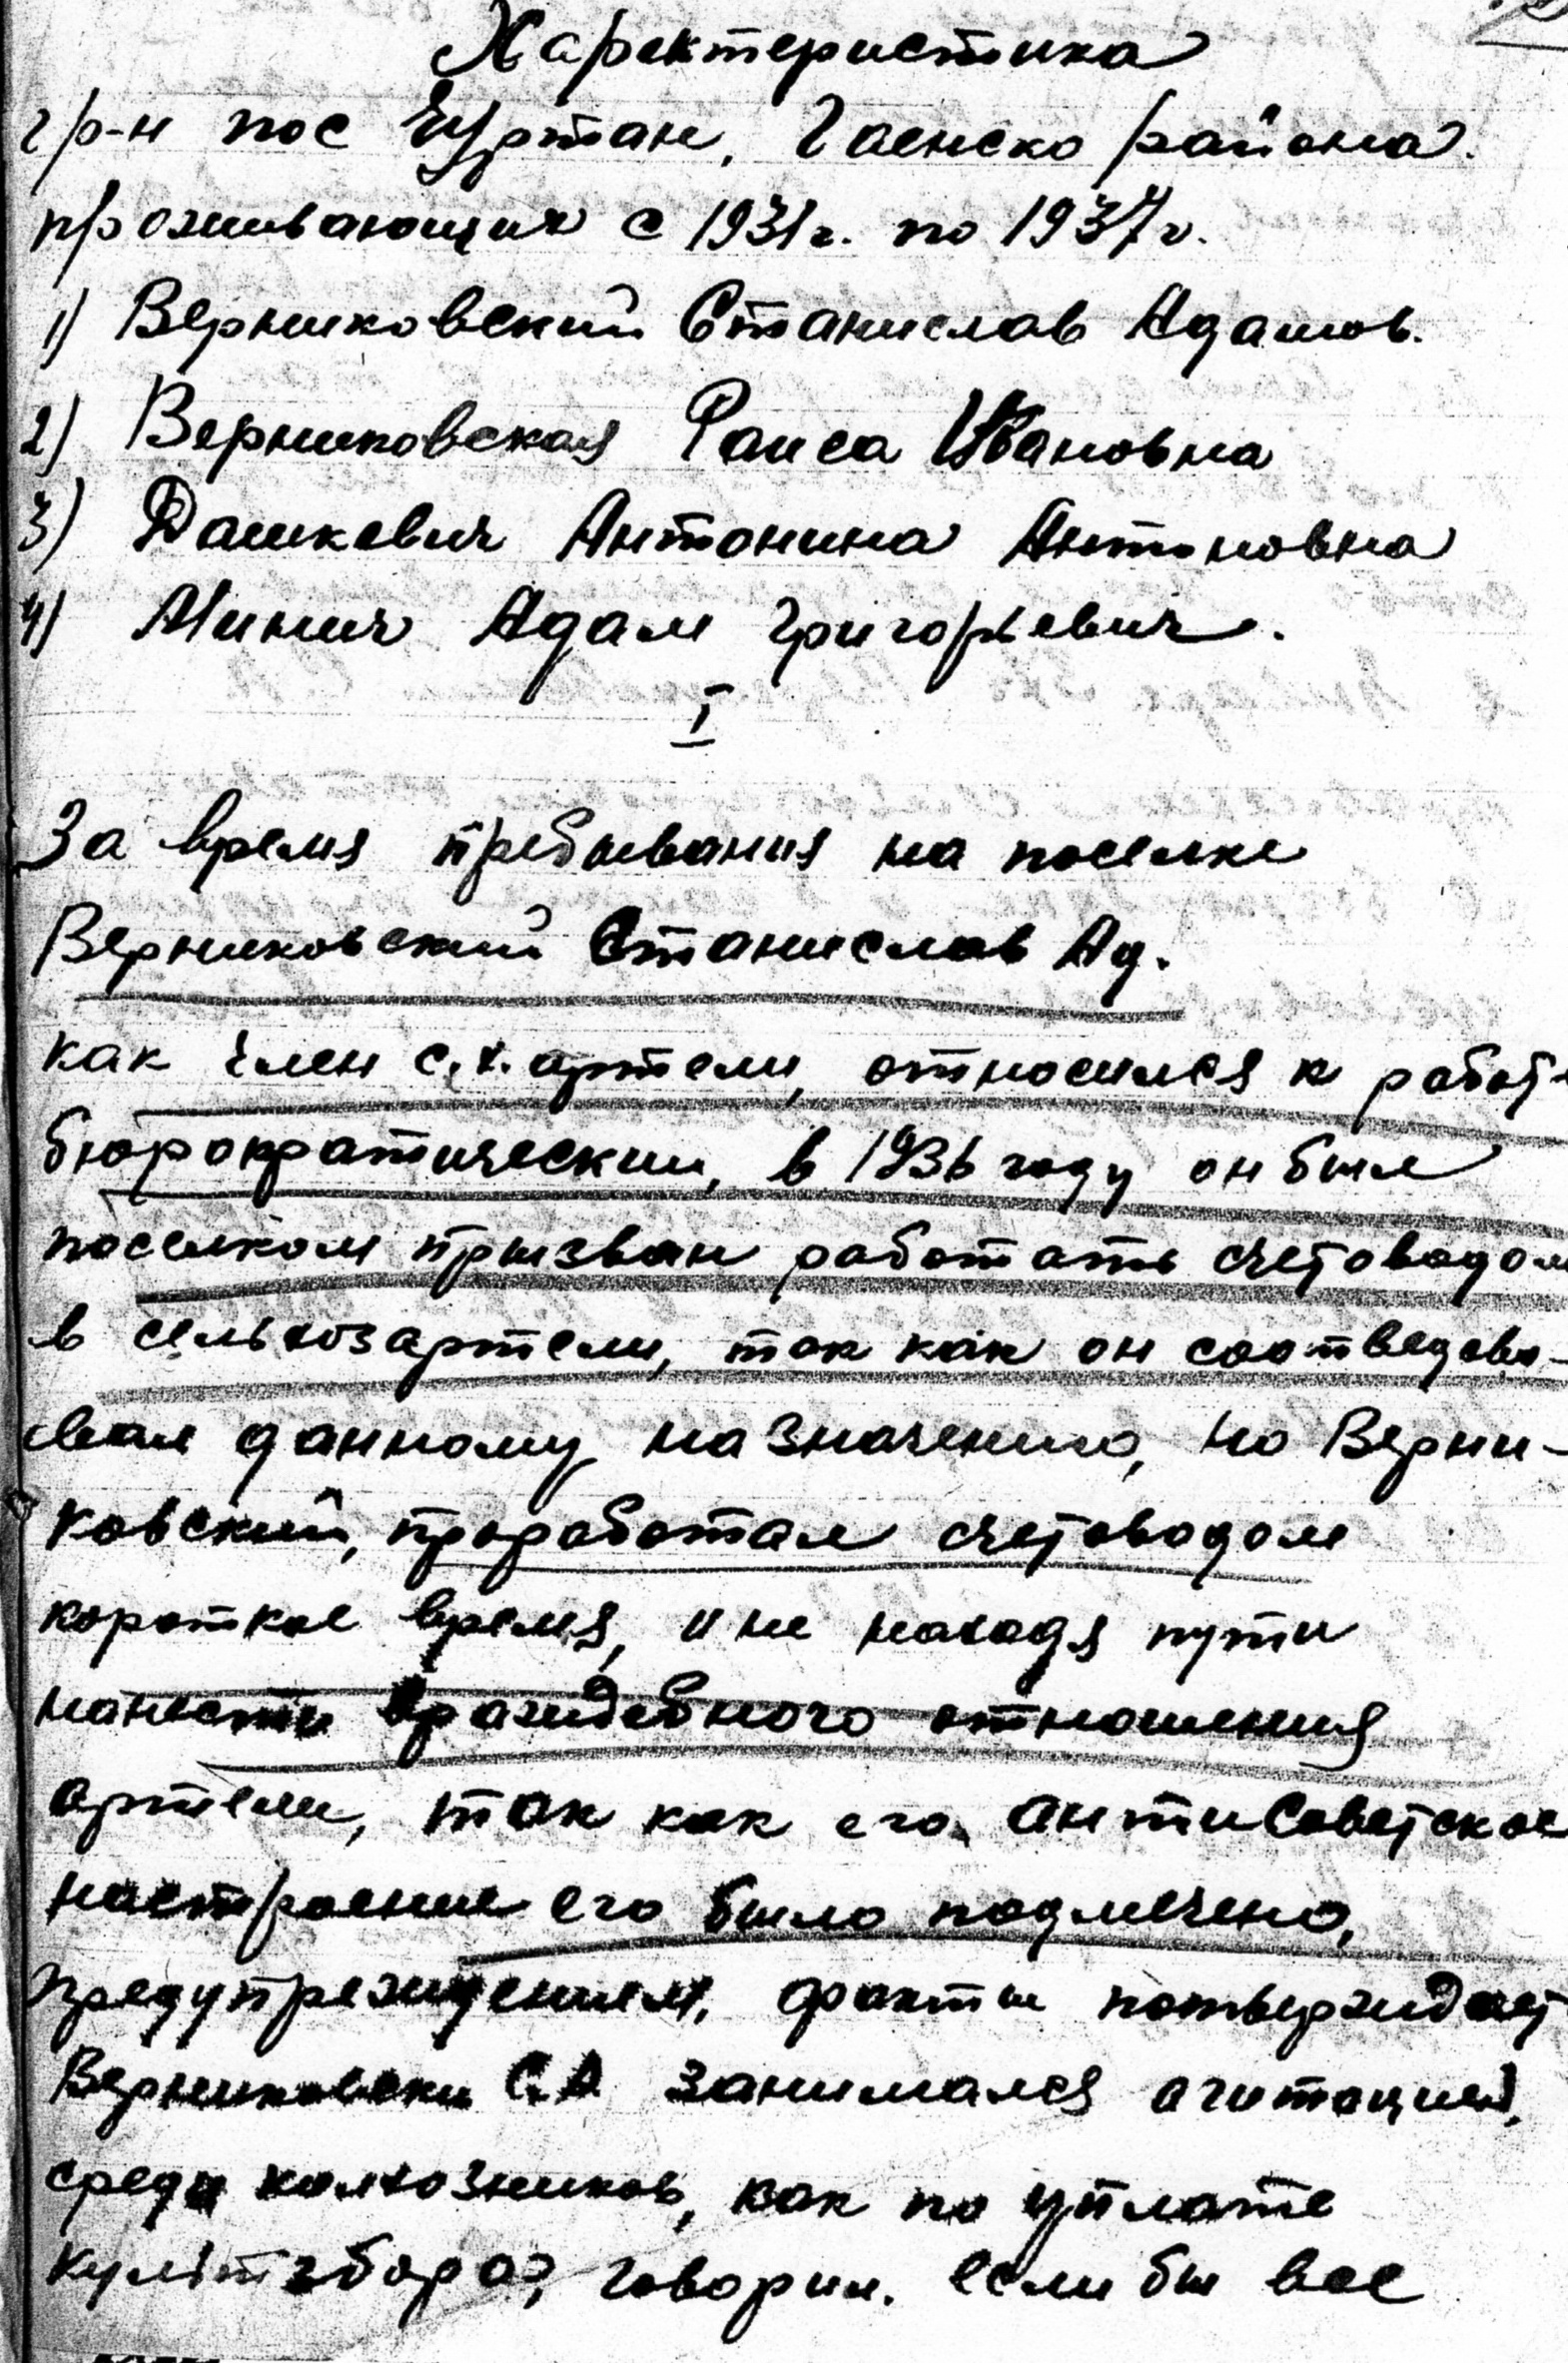 Характеристика
гр-н пос Уртан, Гаенско района.
проживающих с 1931г. по 1937г.
1) Верниковский Станислав Адамов.
2) Верниковская Раиса Ивановна
3) Дашкевич Антонина Антоновна
4) Минич Адам Григорьевич.
I
За время пребывания на поселке
Верниковский Станислав Ад.
как член с.х. артели, относился к работе
бюрократически, в 1936 году он был
поселком призван работать счетоводом
в сельхозартели, так как он соотведово-
вал данному назначению, но Верни-
ковский, проработал счетоводом
короткое время, и не находя пути
нанести враждебного отношения
артели, так как его антиСоветское
настроение его было подмечено,
предупреждением, факты потверждает
Верниковски С.А занимался агитацией,
среди колхозников, как по уплате
культзбора, говорил. если бы все